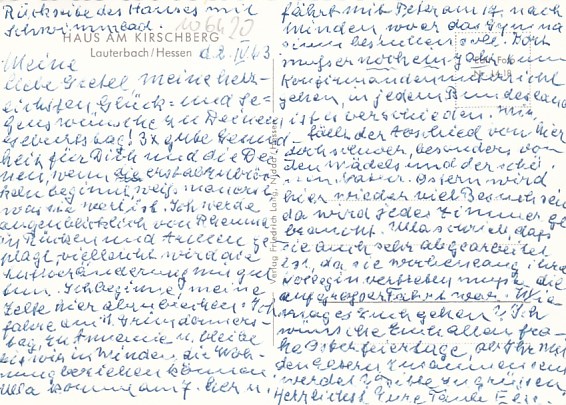 Rückseite des Hauses mit
Schwimmbad.
106620
HAUS AM KIRSCHBERG
Lauterbach/Hessen
d. 2. IV. 63.
Meine
liebe Gretel meine herz-
lichsten Glück- und Se-
genswünsche zu Deinem
Geburtstag! 3x gute Gesund-
heit für Dich und die Dei-
nen, wenn sie erst abzubrök-
keln beginnt weiß man erst
was sie wert ist. Ich werde
augenblicklich von Rheuma
in Rücken und Armen ge-
plagt, vielleicht wird die
Luftveränderung mir gut
tun. Ich beginne meine
Zelte hier abzubrechen. Ich
fahre am Gründonners-
tag zu u. bleibe
bis wir in Minden die Woh-
nung beziehen können.
Ulla kommt am 7. hier u.
fährt mit Peter am 17. nach
Minden wo er das Gymna-
sium besuchen soll. Dort
muß er noch ein Jahr zum
Konfirmandenunterricht
gehen, in jedem Bundesland
ist es verschieden. Mir
fällt der Abschied von hier
doch schwer, besonders von
den Mädels und der schö-
nen Natur. Ostern wird
hier wieder viel Besuch sein
da wird jedes Zimmer ge-
braucht. Ulla schrieb, daß
sie auch sehr abgearbeitet
ist, da sie wochenlang ihre
Kollegin vertreten mußte die
auf großer Fahrt war. Wie
mag es Euch gehen? Ich
wünsche Euch allen fro-
he Osterfeiertage, ob Ihr mit
den Eltern zusammen sein
werdet? Bitte zu grüßen,
Herzlichst Eure Tante Else.
Verlag Friedrich Lang, Nidda/Hessen